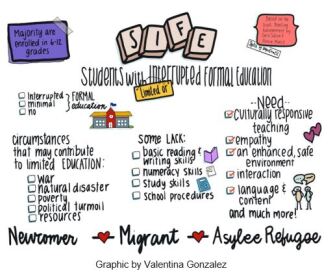 Majority are
enrolled in 6-12
grades
SIFE
Based on the
Students with Interrupted Formal Education
Limited or
Interrupted
minimal
no
FORMAL
education
Circumstances
that may contribute
to limited EDUCATION:
war
natural disaster
poverty
political turmoil
resources
Some Lack:
basic reading &
writing skills
numeracy skills
study skills
school procedures
Need
culturally responsive
teaching
empathy
an enhanced, safe
environment
interaction
language &
content
and much more!
Newcomer Migrant Asylee Refugee
Graphic by Valentina Gonzalez